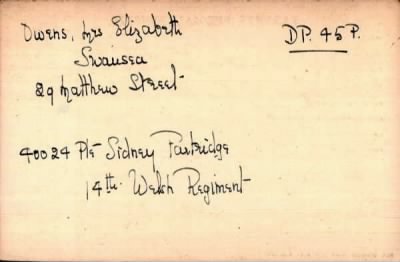 Owens, Mrs Elizabeth
DP. 45P.
Swansea
29 Matthew Street
40024 Pte Sidney Partridge
14th Welsh Regiment